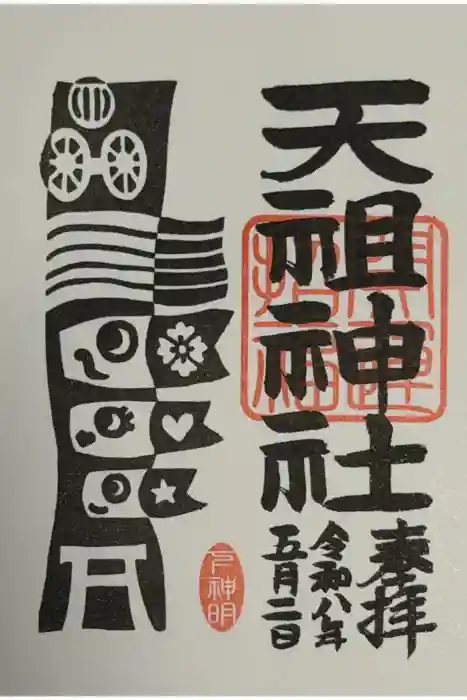 天祖神社
奉拝
令和八年
五月二日
開運
招福
神明